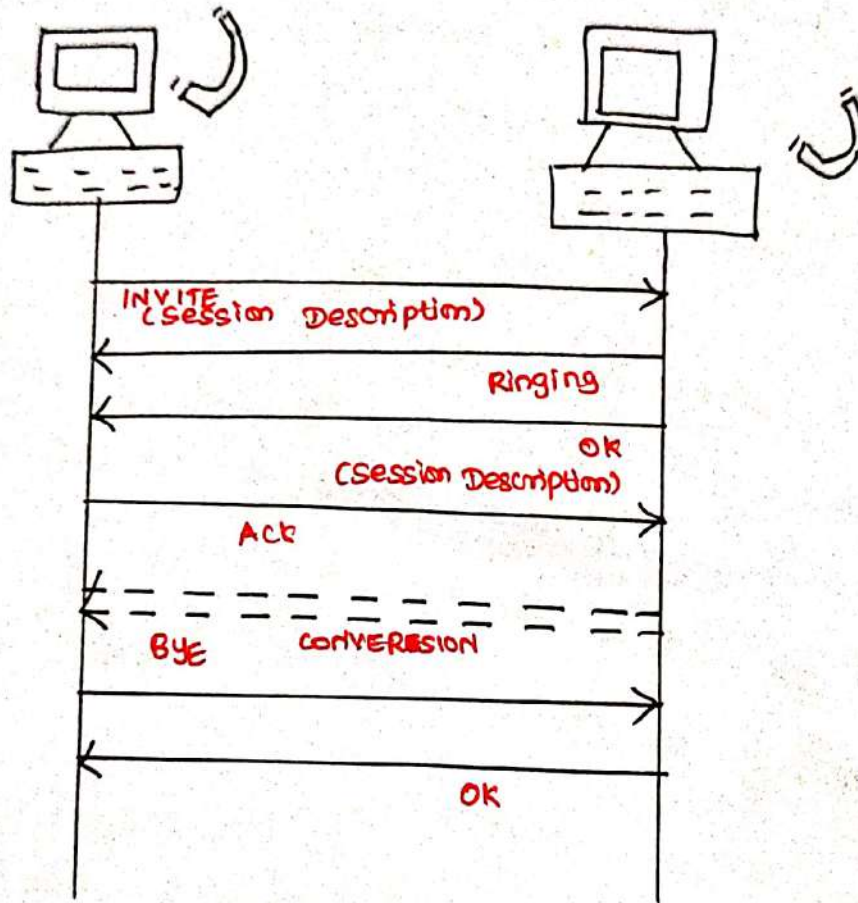 INVITE
(Session Description)
Ringing
OK
(Session Description)
ACK
BYE CONVERESION
OK